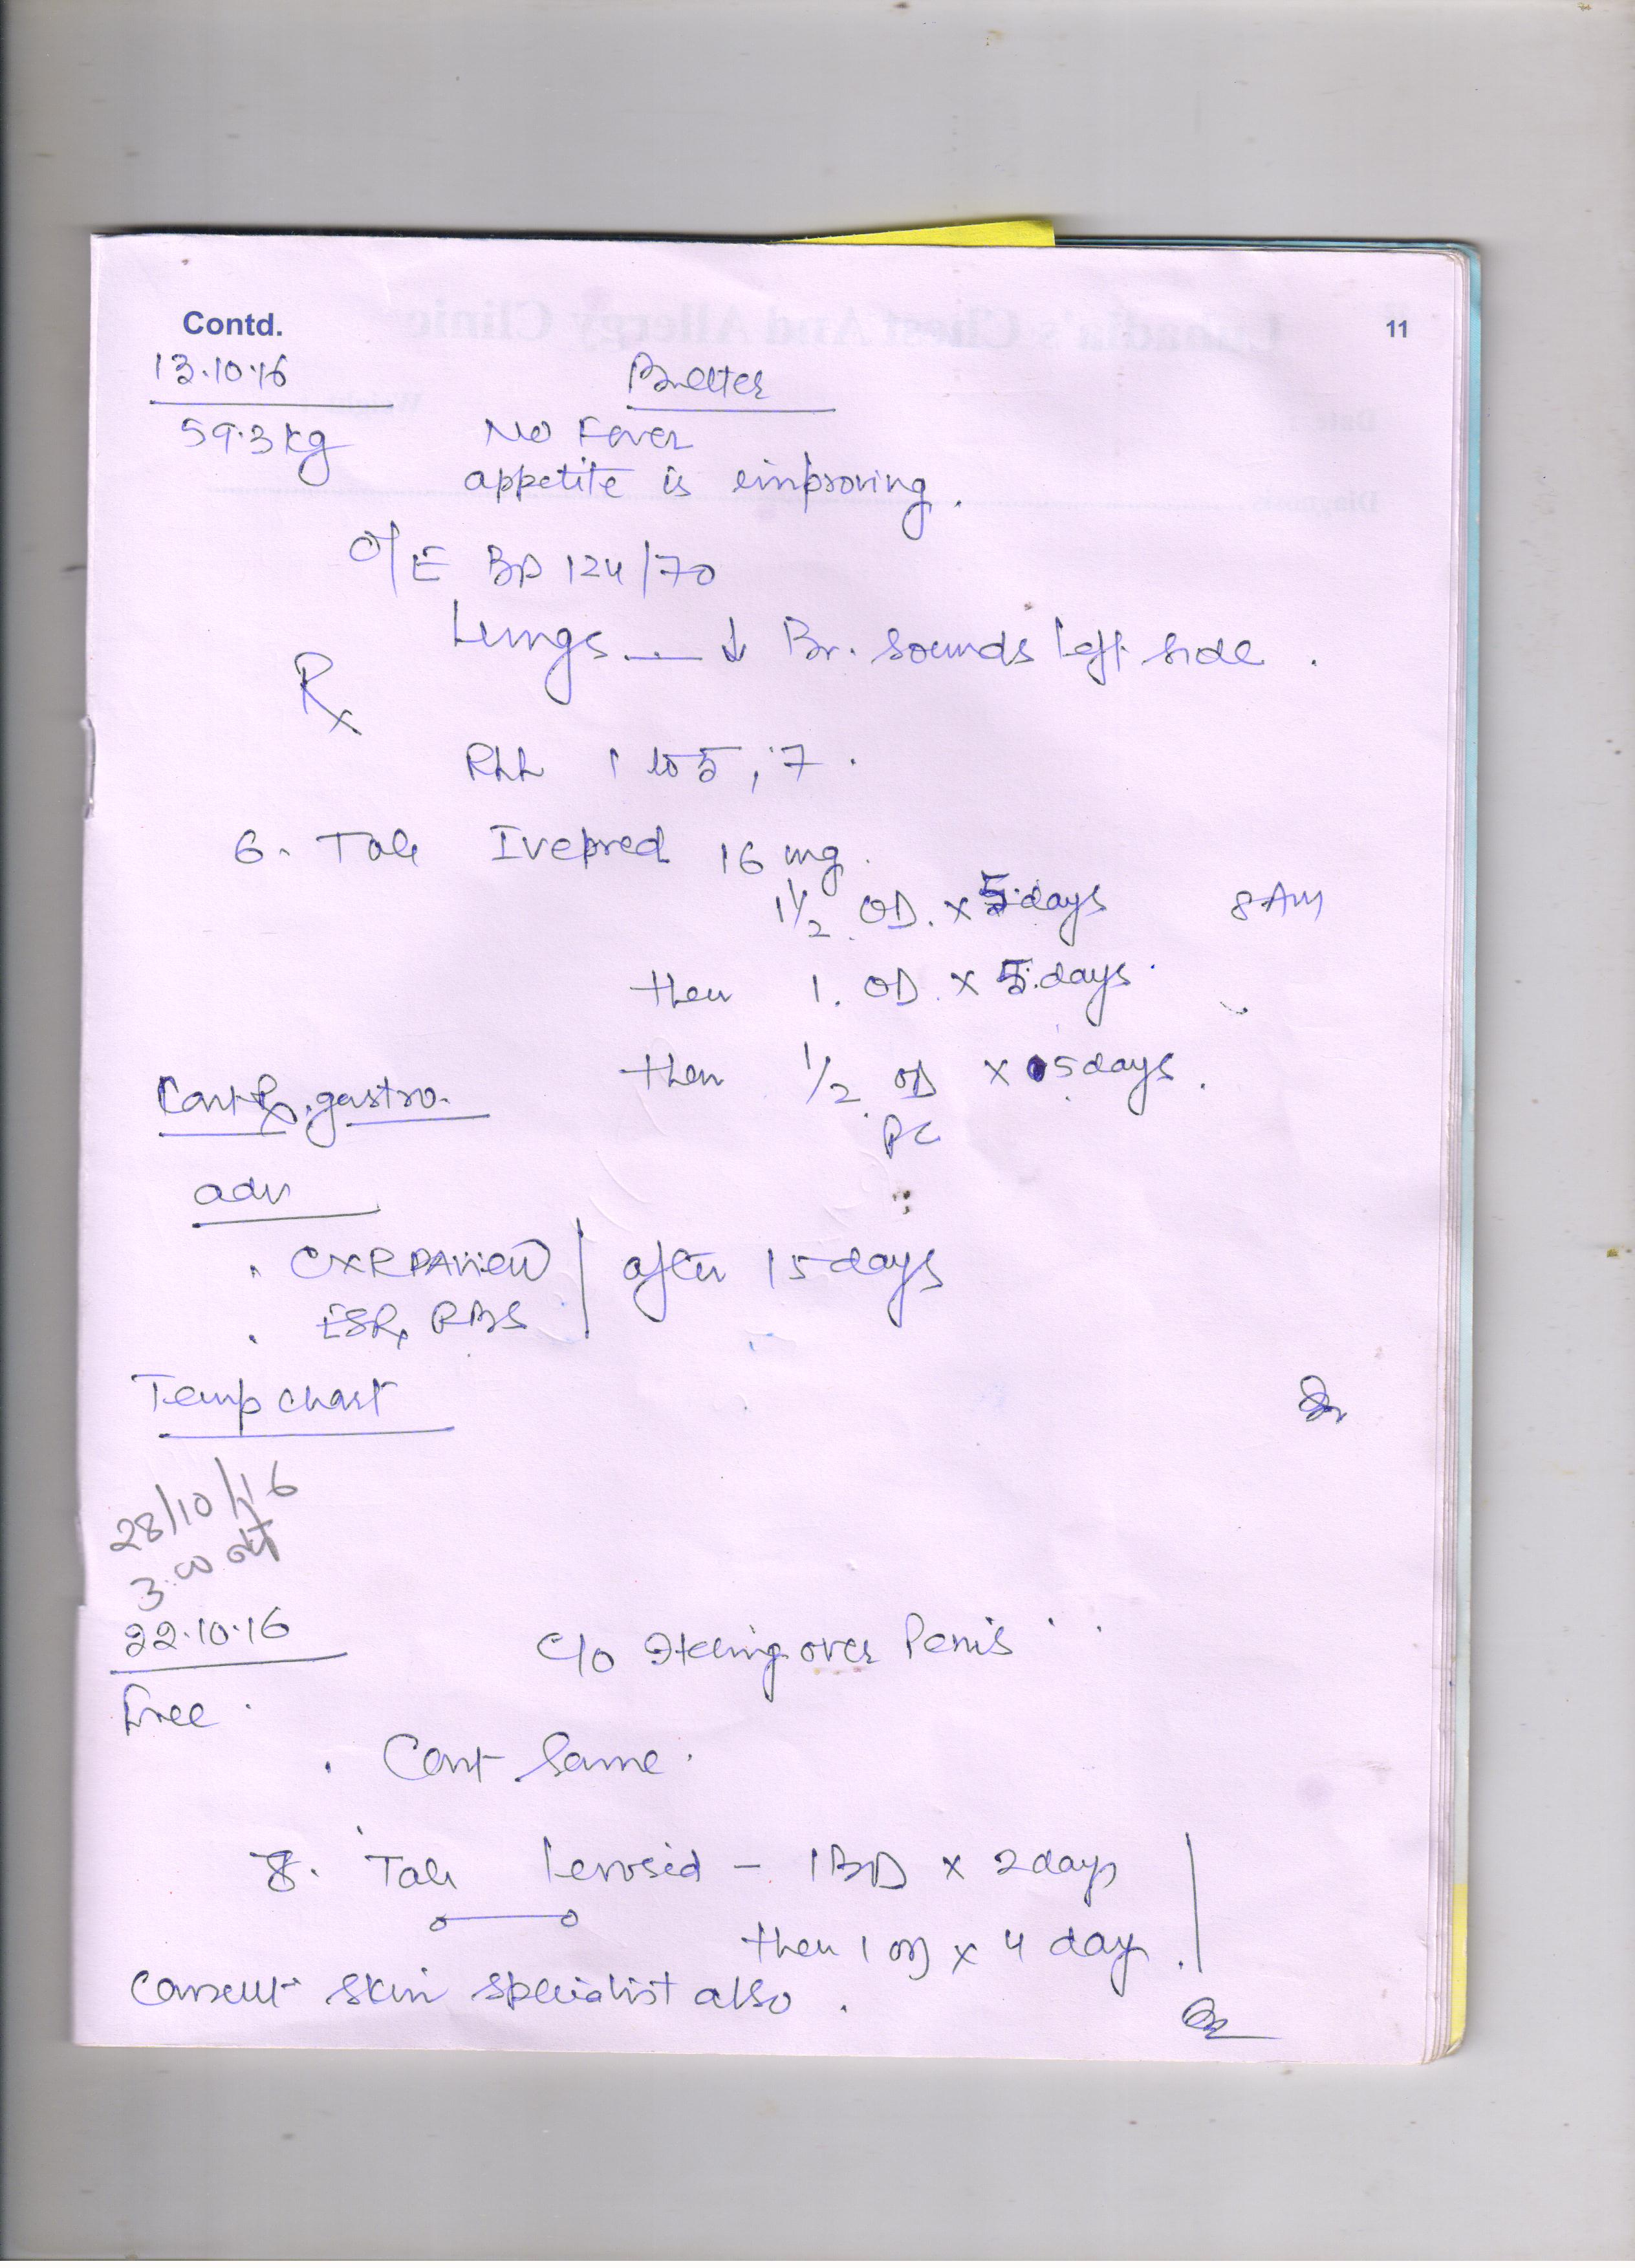 Contd.
11
13.10.16
Better
59.3 kg
No Fever
appetite is eimproving.
O/E BP 124/70
Lungs — ↓ Br. sounds left side.
Rx
1 to 5, 7.
6. Tab Ivepred 16 mg.
1 1/2 OD. x 5 days 8 AM
then 1. OD. x 5. days.
then 1/2 OD x 5 days.
PC
Cont Rx. gastro.
adv
. CXR PA view | after 15 days
. ESR, RBS
Temp chart
28/10/16
3:00
22.10.16
C/O Itching over Penis
Free.
. Cont Same.
8. Tab Levosid - 1 BD x 2 days
then 1 OD x 4 day.
Consult skin specialist also.